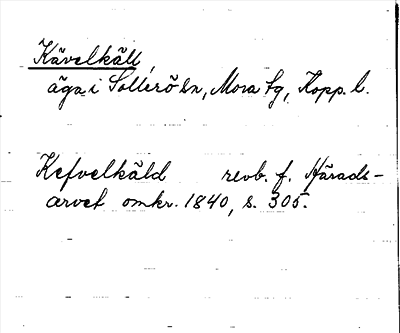 Kävelkäll,
äga i Sollerö sn, Mora tg, Kopp. l.
Kefvelkäld revb. f. Härads-
arvet omkr. 1840, s. 305.